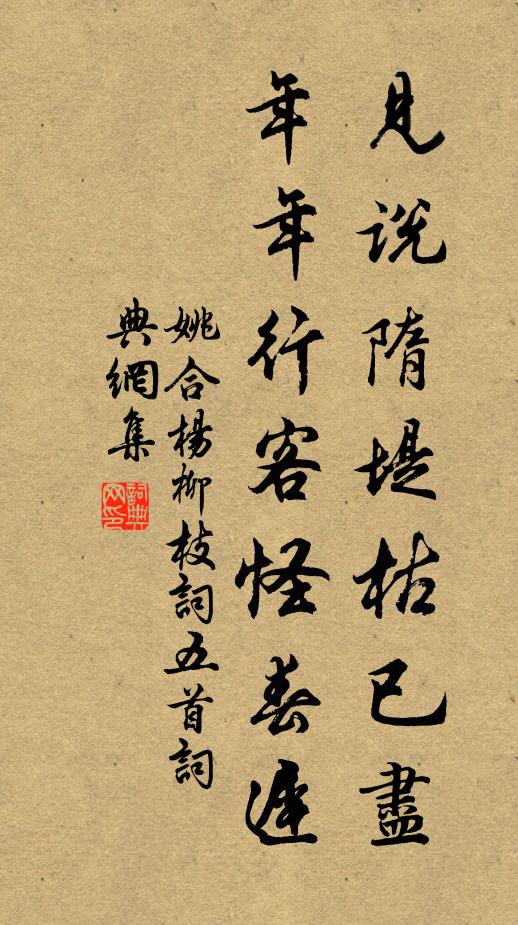 見説隋堤枯已盡
年年行客怪春遲
姚合楊柳枝詞五首詞
典網集
詞典网印